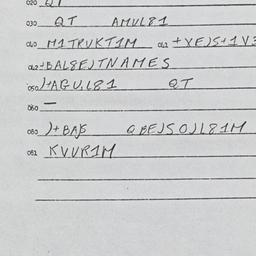 020 QT
030 QT AMUL81
040 M1TRVKT1M 041 +YEJS+1V3
042 +BAL8EJTNAMES
050 )+AGUL81 QT
060 —
080 )+BA QBEJSOJL81M
081 KVVR1M